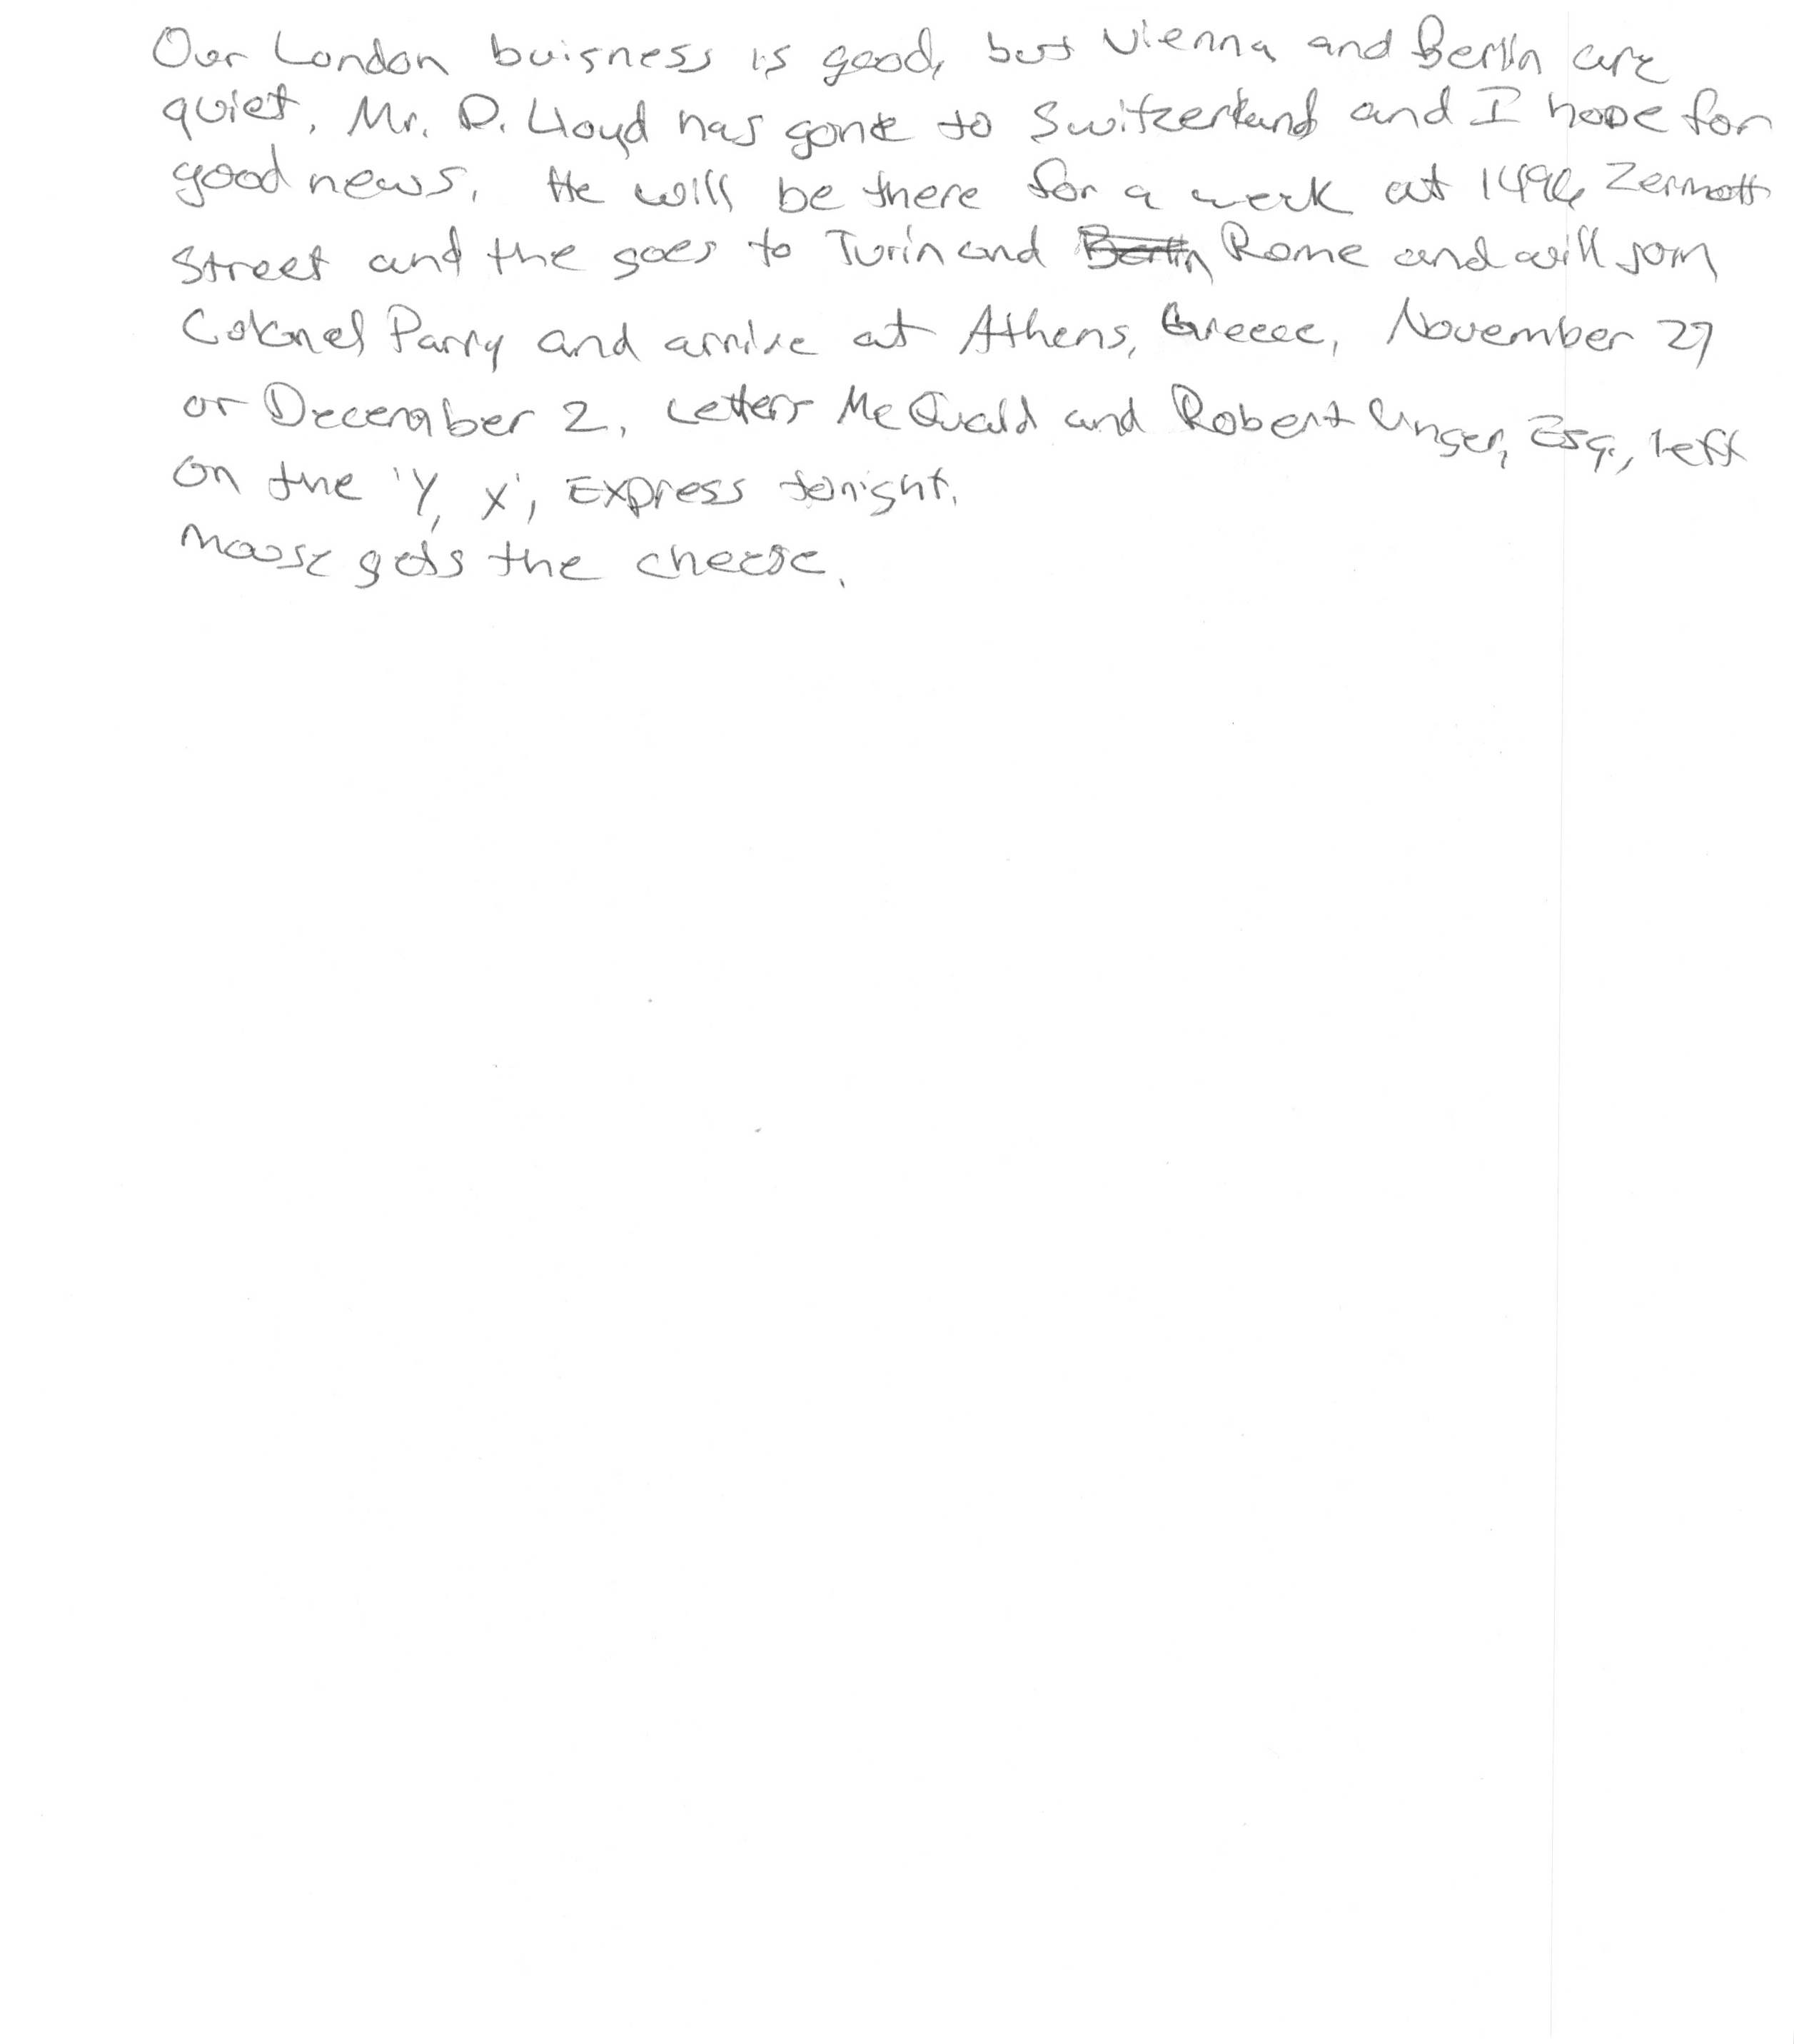 Our London buisness is good, but Vienna and Berlin are
quiet. Mr. D. Lloyd has gone to Switzerland and I hope for
good news. He will be there for a week at 1496 Zermott
Street and the goes to Turin and Berlin Rome and will join
Colonel Parry and arrive at Athens, Greece, November 27
or December 2. Letters Mc Quald and Robert Unger, Esq., left
on the 'Y, X', Express tonight.
Mouse gets the cheese.